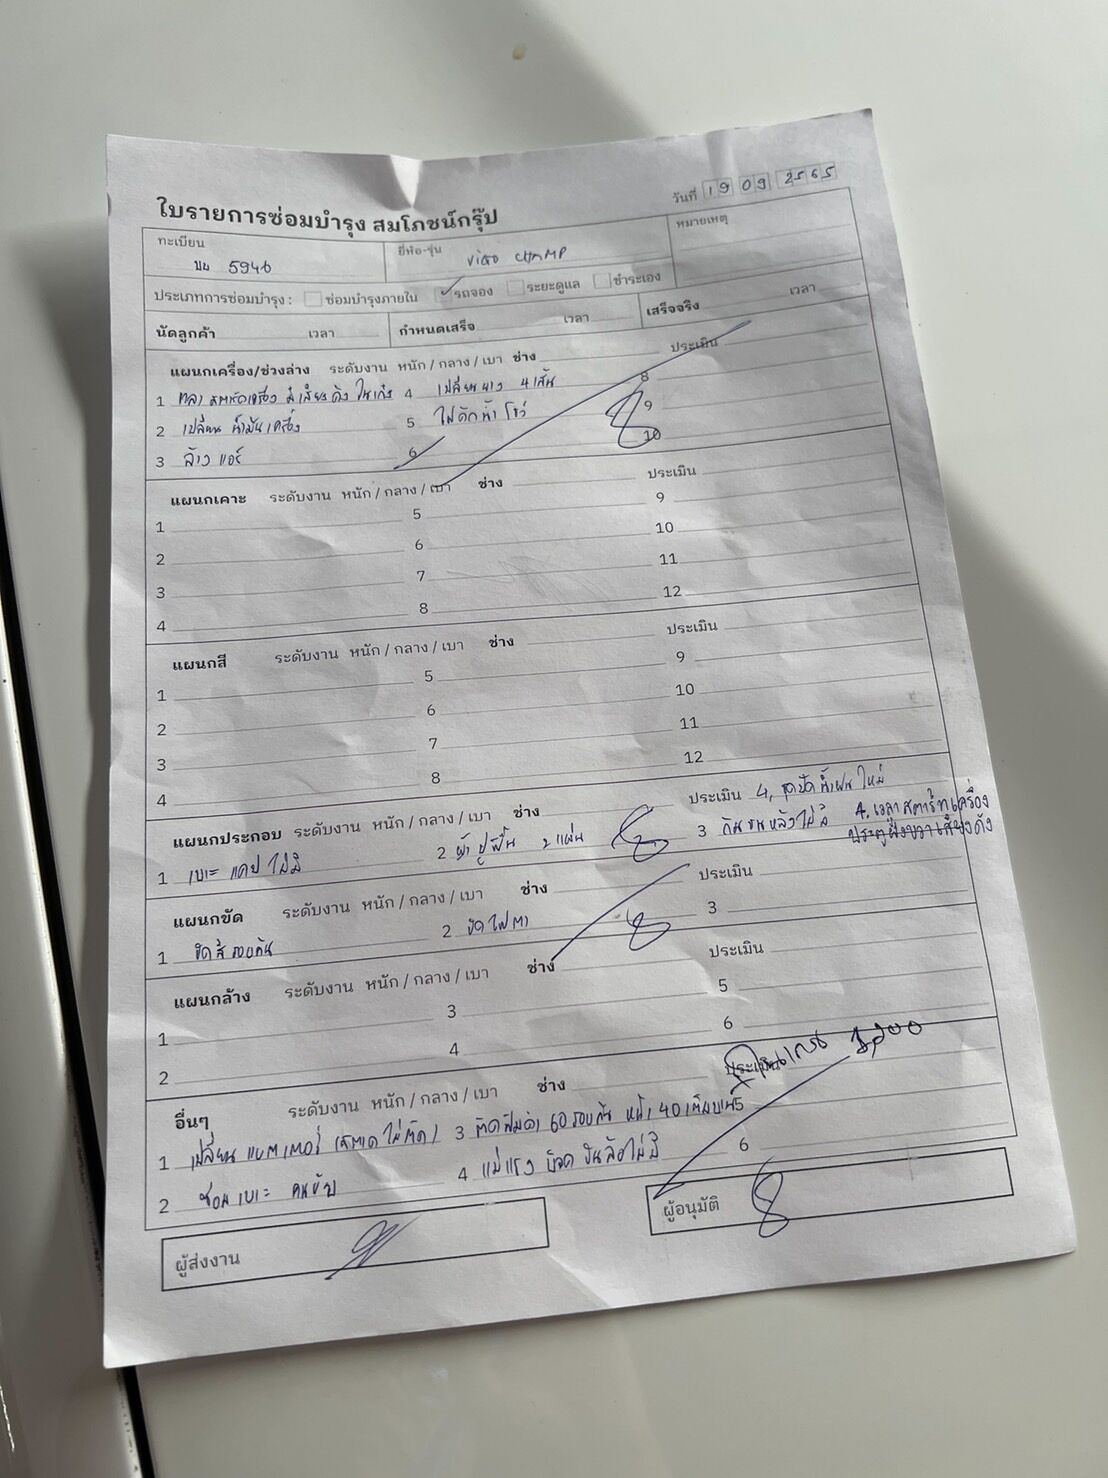 ใบรายการซ่อมบำรุง สมโภชน์กรุ๊ป
วันที่ 19 09 2565
ทะเบียน ยี่ห้อ-รุ่น หมายเหตุ
5946 VIGO CHAMP
ประเภทการซ่อมบำรุง : ซ่อมบำรุงภายใน รถจอง ระยะดูแล ชำระเอง
นัดลูกค้า เวลา กำหนดเสร็จ เวลา เสร็จจริง เวลา
แผนกเครื่อง/ช่วงล่าง ระดับงาน หนัก / กลาง / เบา ช่าง ประเมิน
1 สตาร์ทเครื่อง มีเสียงดัง ในเก๋ง 4 เปลี่ยนยาง 4 เส้น 8
2 เปลี่ยน น้ำมันเครื่อง 5 ไม่ดักน้ำ โชว์ 9
3 ล้าง แอร์ 6 10
แผนกเคาะ ระดับงาน หนัก / กลาง / เบา ช่าง ประเมิน
1 5 9
2 6 10
3 7 11
4 8 12
แผนกสี ระดับงาน หนัก / กลาง / เบา ช่าง ประเมิน
1 5 9
2 6 10
3 7 11
4 8 12
แผนกประกอบ ระดับงาน หนัก / กลาง / เบา ช่าง ประเมิน 4, ชุดฉีดน้ำฝน ใหม่
1 เบาะ แคป ไม่มี 2 ผ้า ปูพื้น 2 แผ่น 3 กันชนหลังไม่มี 4. เวลาสตาร์ทเครื่อง
ประตูฝั่งขวาเสียงดัง
แผนกขัด ระดับงาน หนัก / กลาง / เบา ช่าง ประเมิน
1 ขัดสี รอบคัน 2 ขัดไฟตา 3
แผนกล้าง ระดับงาน หนัก / กลาง / เบา ช่าง ประเมิน
1 3 5
2 4 6
อื่นๆ ระดับงาน หนัก / กลาง / เบา ช่าง ประเมิน
1 เปลี่ยน แบตเตอรี่ (สตาดไม่ติด) 3 ติดฟิมดำ 60 รอบคัน หน้า 40 เต็มบาน 5
2 ซ่อม เบาะ คนขับ 4 แม่แรง บ๊อค ขันล้อไม่มี 6
ผู้ส่งงาน ผู้อนุมัติ